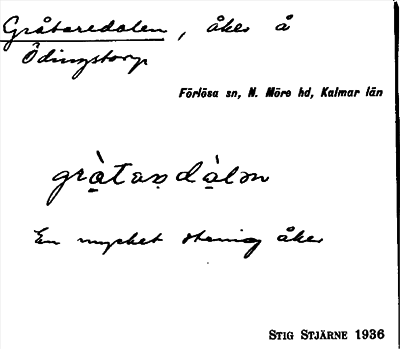 Gråtaredalen, åker å
Ödingstorp
Förlösa sn, N. Möre hd, Kalmar län
En mycket stenig åker
STIG STJÄRNE 1936